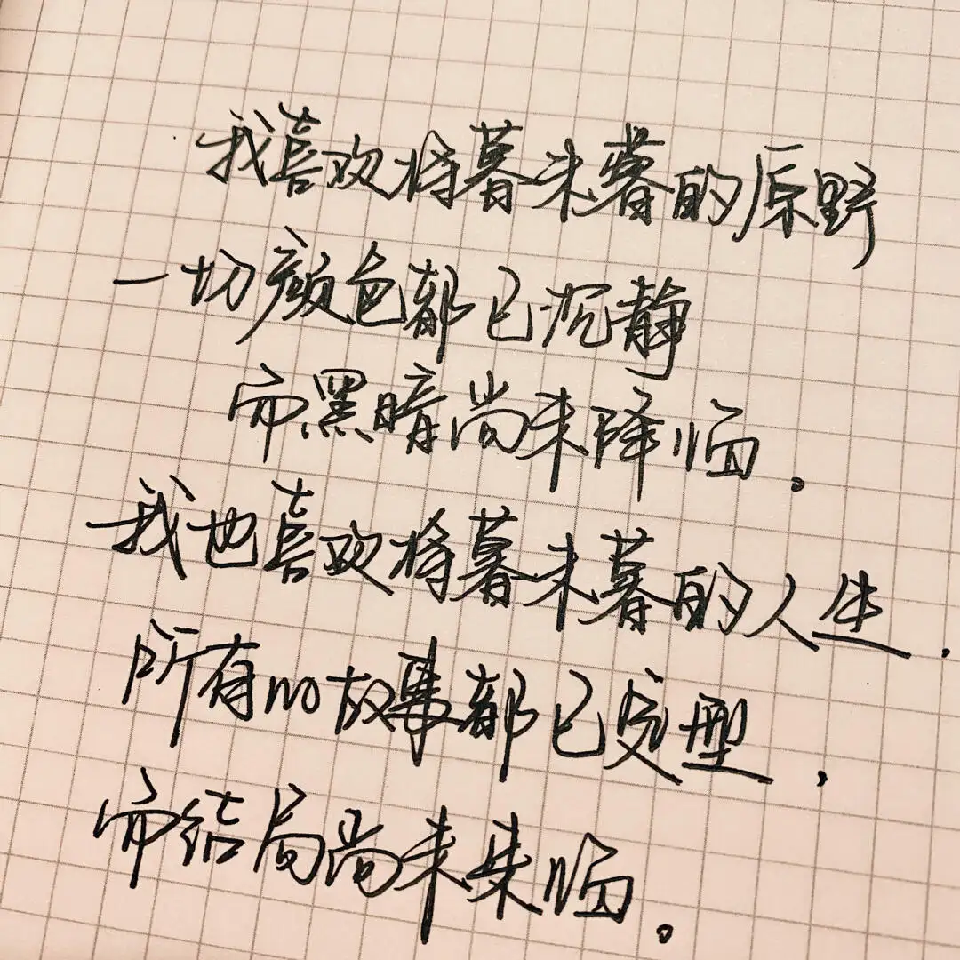 我喜欢将暮未暮的原野
一切颜色都已沉静
而黑暗尚未降临。
我也喜欢将暮未暮的人生,
所有no故事都已变型,
而结局尚未来临。